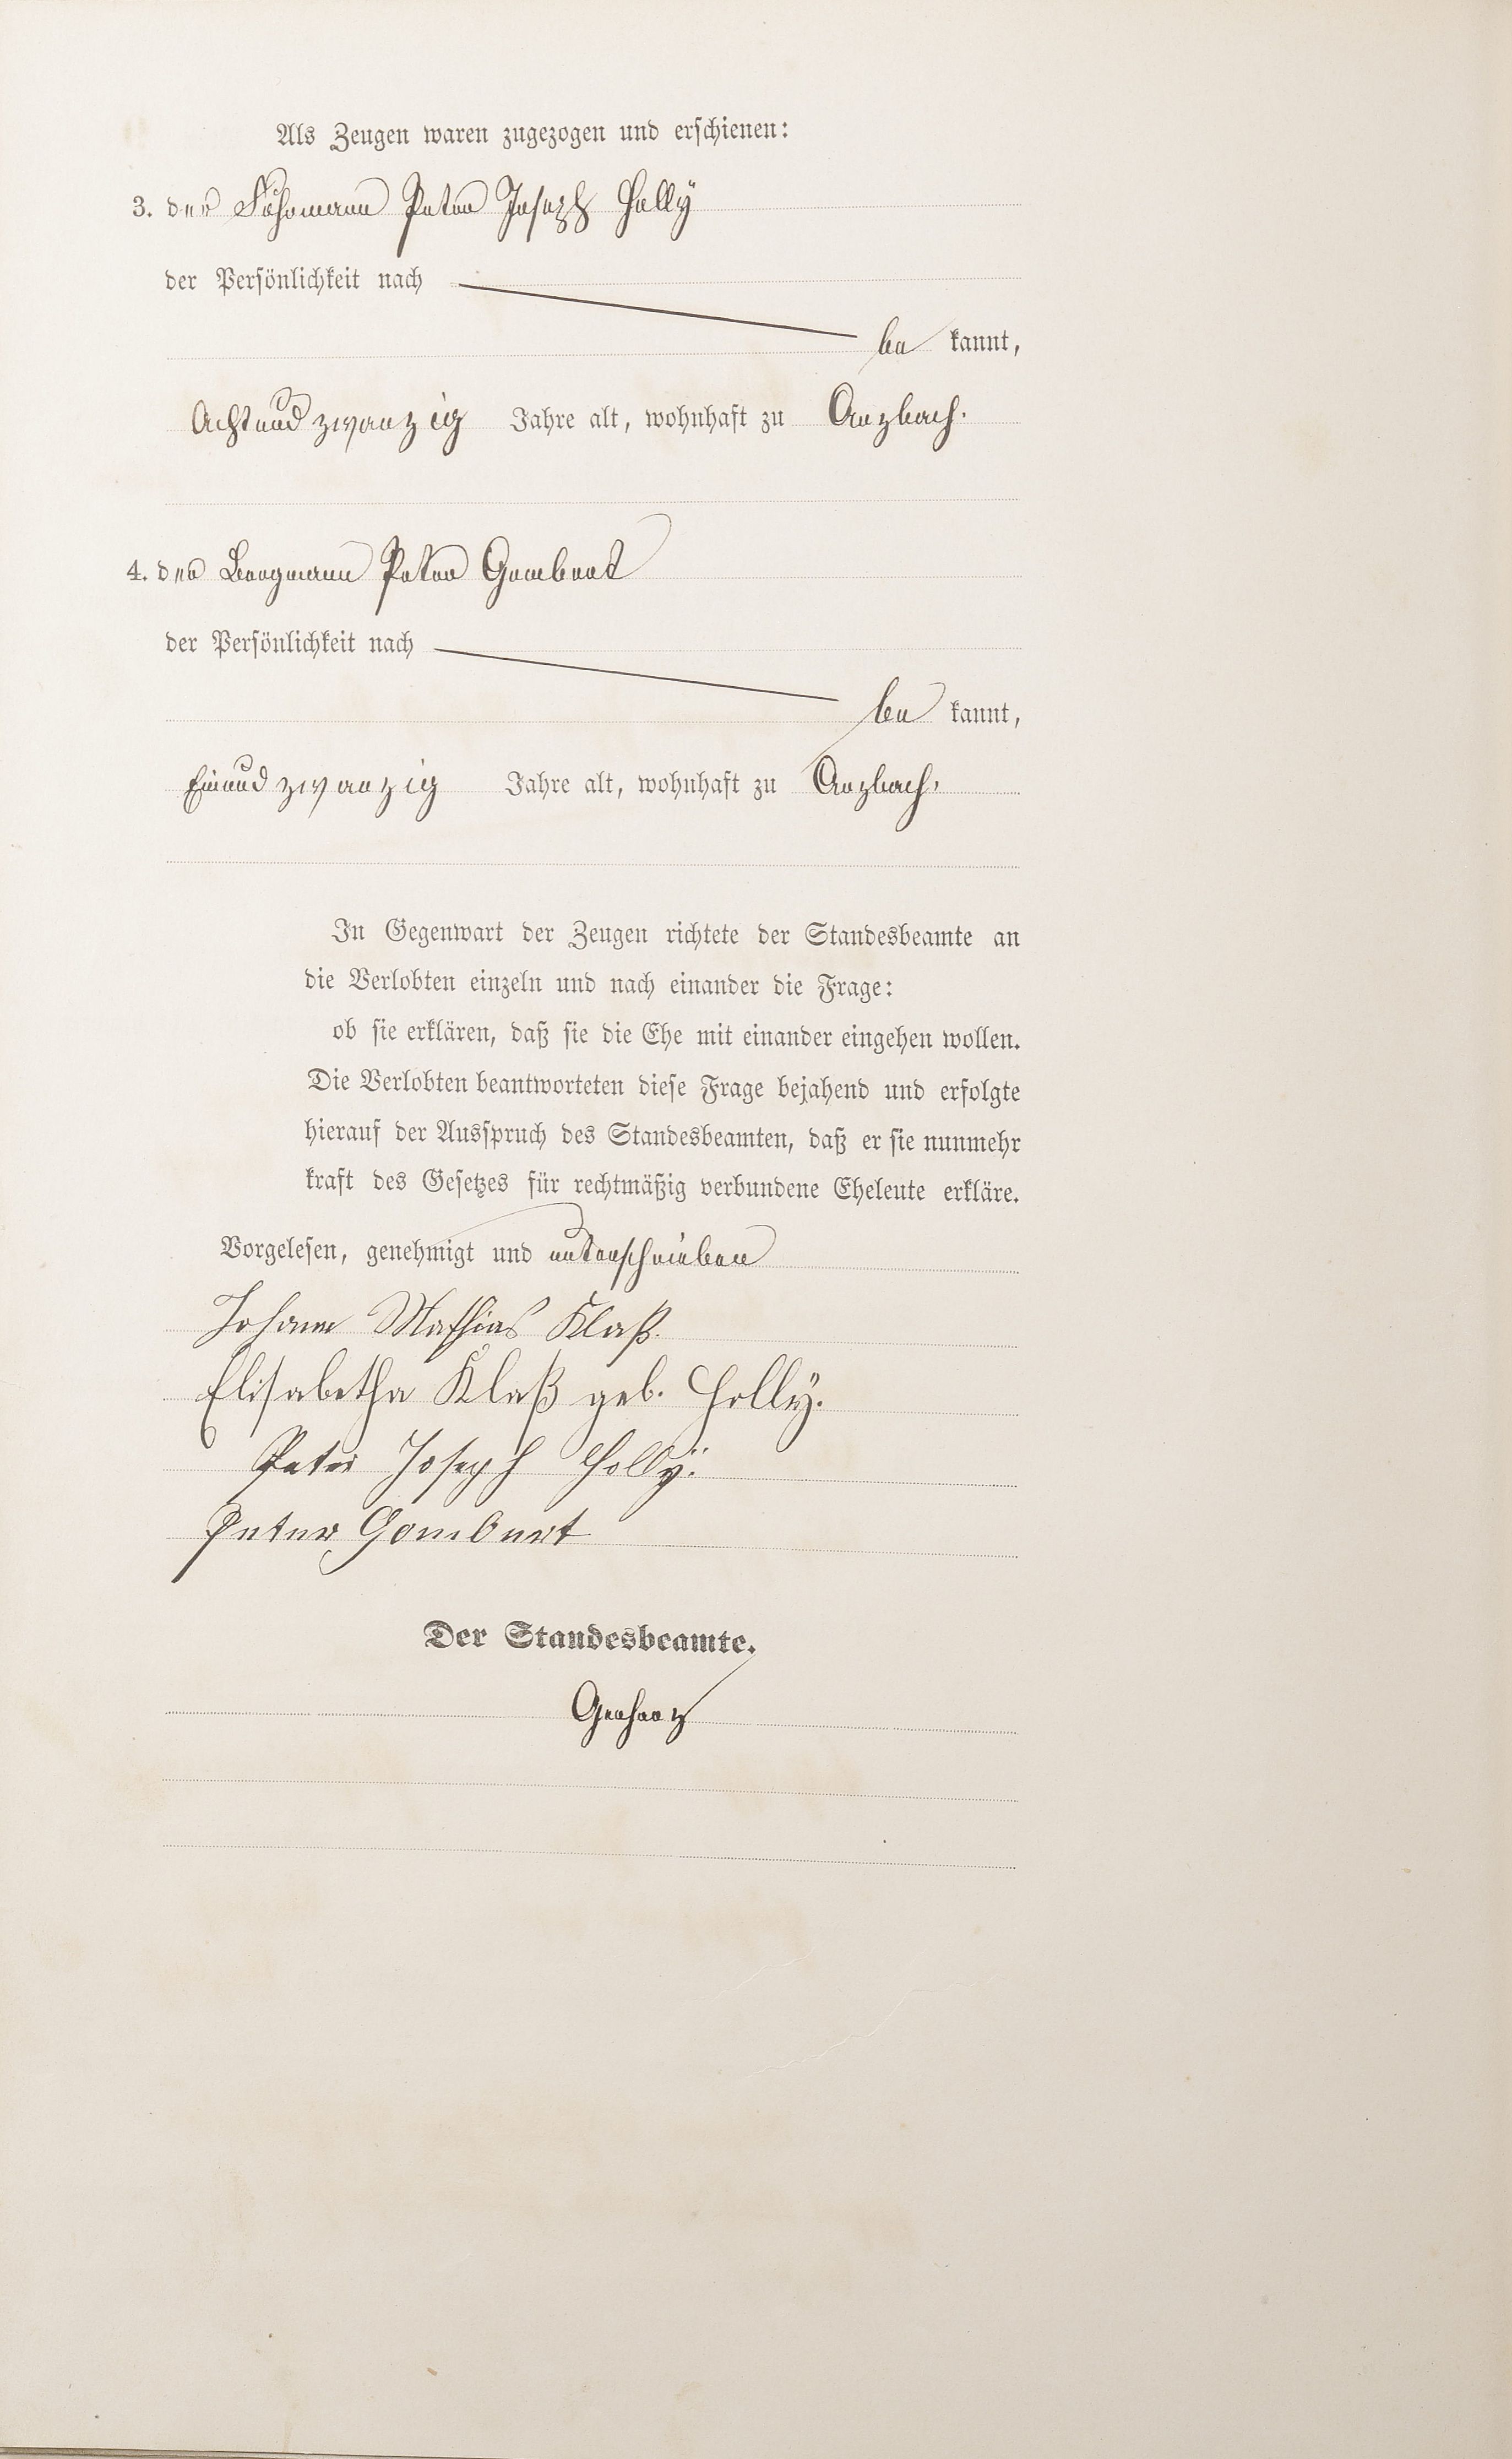 Als Zeugen waren zugezogen und erschienen:
3. der Fuhrmann Peter Joseph Holly
der Persönlichkeit nach
be kannt,
Achtundzwanzig Jahre alt, wohnhaft zu Anzbach.
4. der Bergmann Peter Gombert
der Persönlichkeit nach
be kannt,
Einundzwanzig Jahre alt, wohnhaft zu Anzbach.
In Gegenwart der Zeugen richtete der Standesbeamte an
die Verlobten einzeln und nach einander die Frage:
ob sie erklären, daß sie die Ehe mit einander eingehen wollen.
Die Verlobten beantworteten diese Frage bejahend und erfolgte
hierauf der Ausspruch des Standesbeamten, daß er sie nunmehr
kraft des Gesetzes für rechtmäßig verbundene Eheleute erkläre.
Vorgelesen, genehmigt und unterschrieben
Johann Mathias Klaß.
Elisabetha Klaß geb. Holly.
Peter Joseph Holly.
Peter Gombert
Der Standesbeamte.
Gerharz